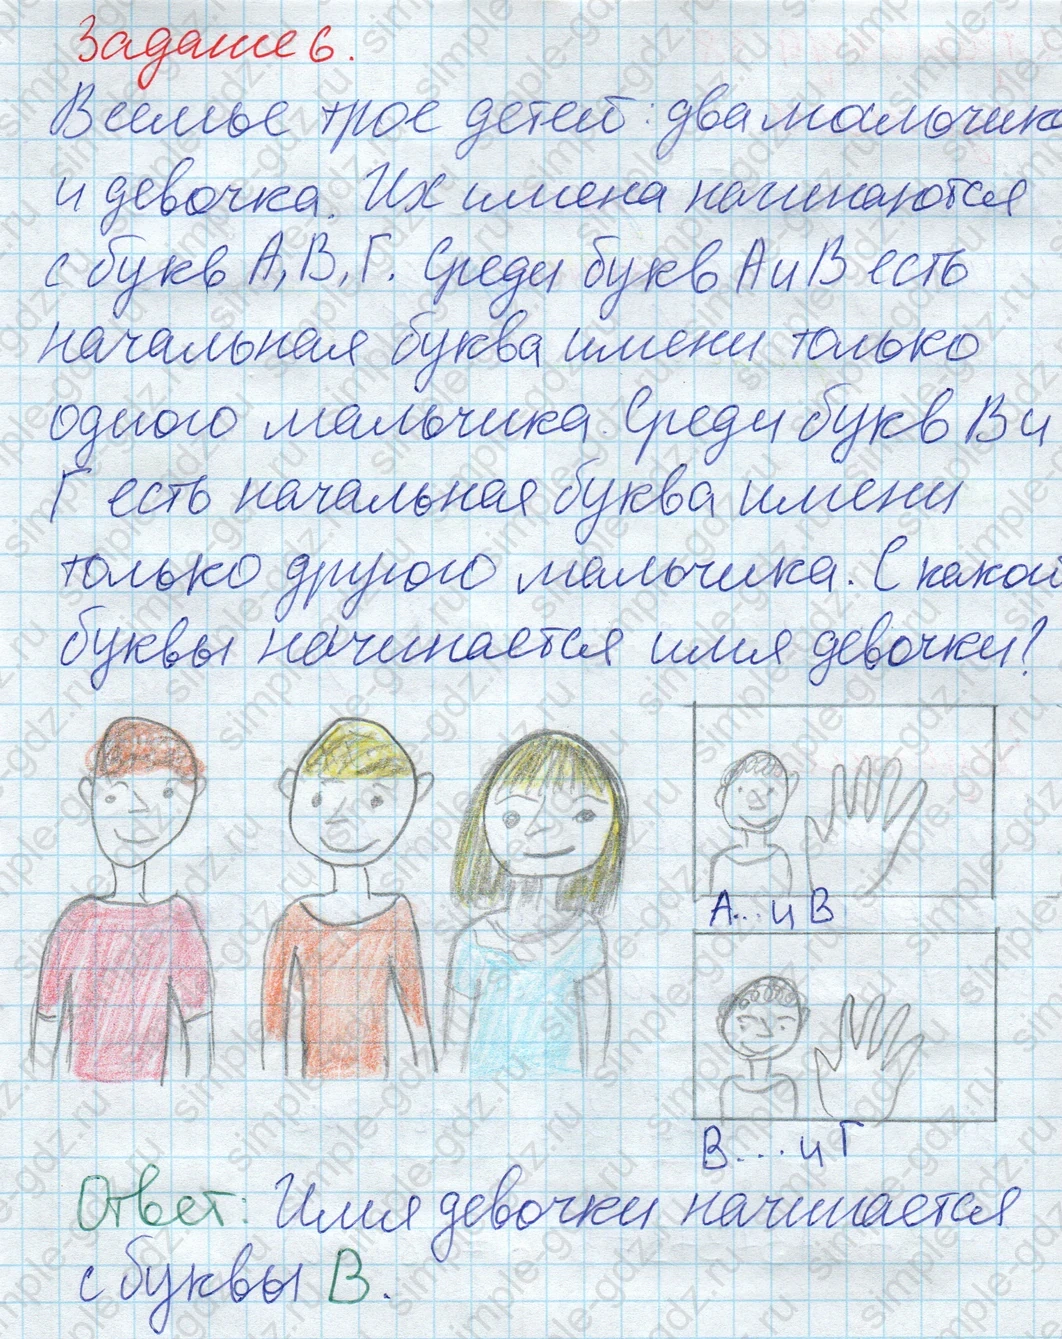 Задание 6.
В семье трое детей: два мальчика
и девочка. Их имена начинаются
с букв А, В, Г. Среди букв А и В есть
начальная буква имени только
одного мальчика. Среди букв В и
Г есть начальная буква имени
только другого мальчика. С какой
буквы начинается имя девочки?
А... и В
В... и Г
Ответ: Имя девочки начинается
с буквы В.
simple-gdz.ru